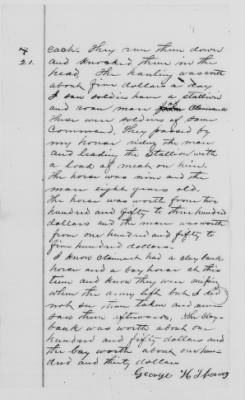 21.
each. They run them down
and knocked them in the
head. The hauling was worth
about five dollars a day
I saw soldiers have a stallion
and roan mare Claimant
These were soldiers of same
Command, They passed by
my house riding the mare
and leading the Stallion with
a load of meat on him.
the horse was nine and the
mare eight years old.
the horse was worth from two
hundred and fifty to three hundred
dollars and the mare was worth
from one hundred and fifty to
five hundred dollars.
I know claimant had a clay bank
horse and a bay horse at this
time and know they were
when the army left but I did
not see them taken and never
saw them afterwards, the clay
bank was worth about one
hundred and fifty dollars and
the bay worth about one hun-
dred and thirty dollars
George H